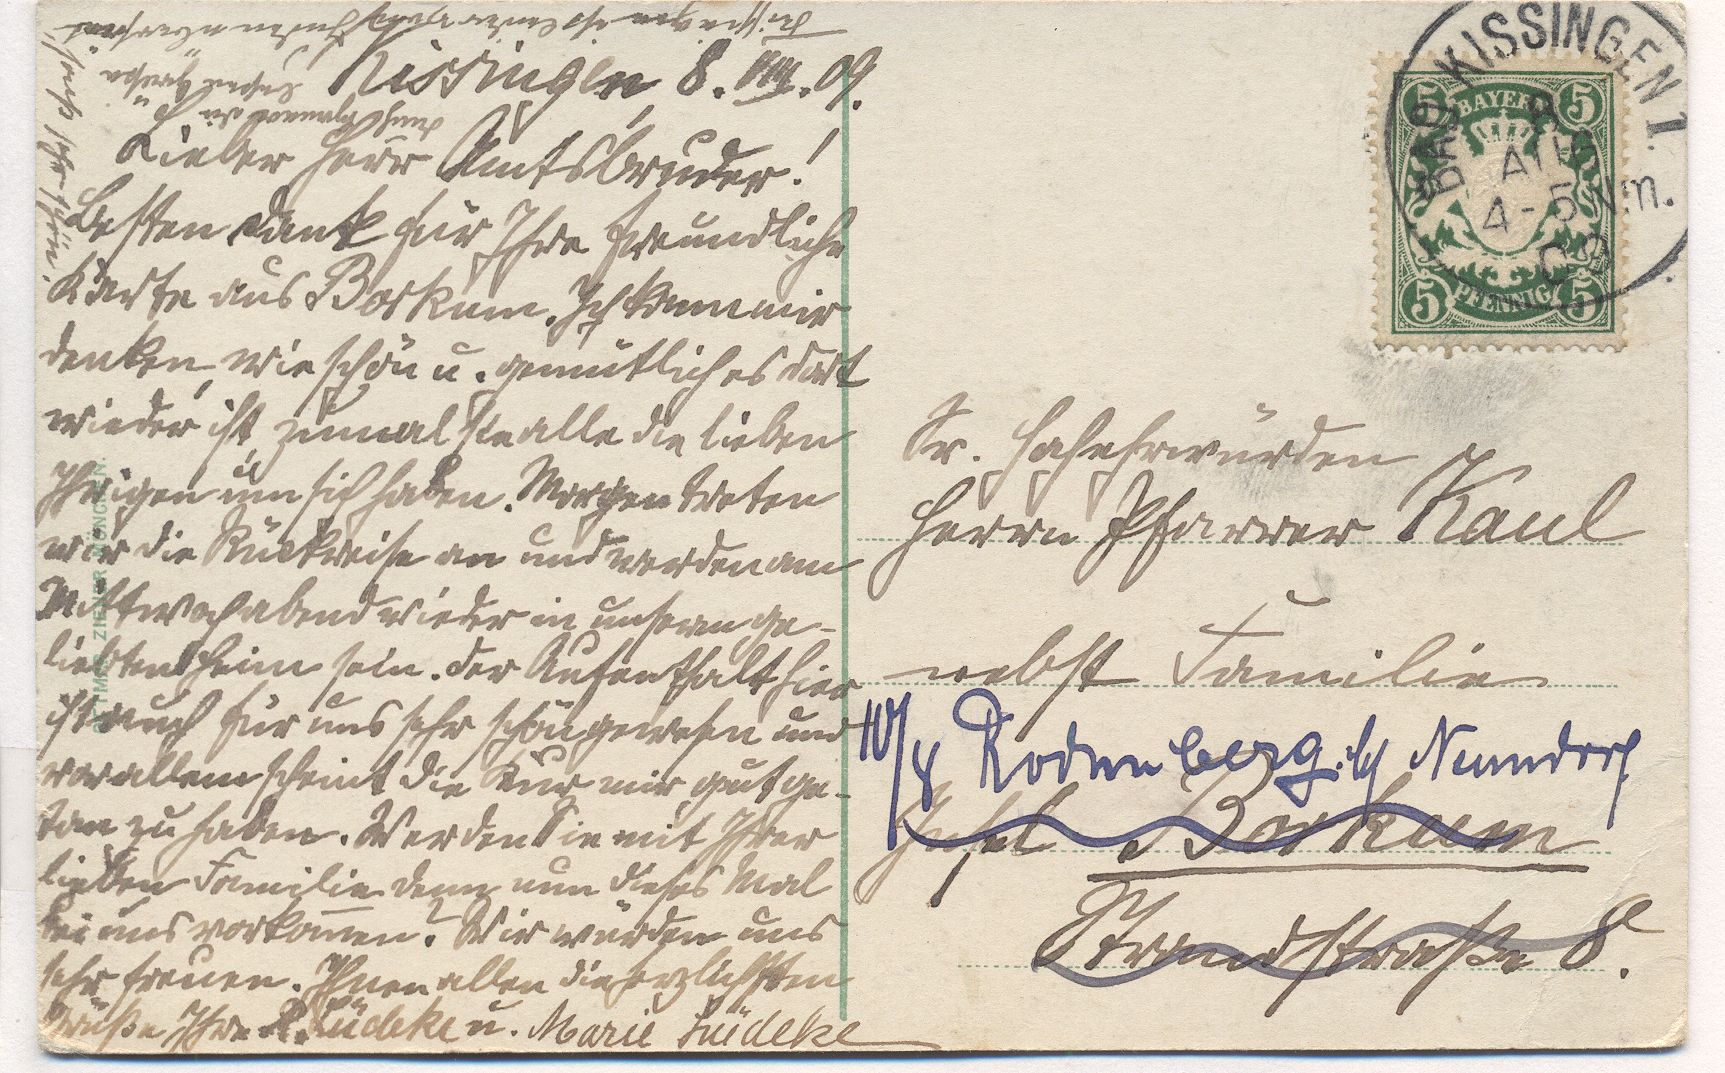 Kissingen, 8. VIII. 09.
Lieber Herr Amtsbruder!
Besten Dank für Ihre freundliche
Karte aus Borkum. Ich kann mir
denken, wie schön u. gemütlich es dort
wieder ist, zumal Sie alle die lieben
Ihrigen um sich haben. Morgen treten
wir die Rückreise an und werden am
Mittwochabend wieder in unserm ge-
liebten Heim sein. Der Aufenthalt hier
ist auch für uns sehr schön gewesen und
vor allem scheint die Kur mir gut ge-
tan zu haben. Werden Sie mit Ihrer
lieben Familie denn nun dieses Mal
bei uns vorkommen? Wir würden uns
sehr freuen. Ihnen allen die herzlichsten
Grüße Ihre R. Lüdeke u. Marie Lüdeke
BAD KISSINGEN 1.
8
AUG
4-5 N.m.
09
BAYERN
5 5
5 5
PFENNIG
Sr. Hochehrwürden
Herrn Pfarrer Kaul
nebst Familie
10/8 Rodenberg b/ Nenndorf
Insel Borkum
Strandstraße 8.
OTTMAR ZIEHER, MÜNCHEN.